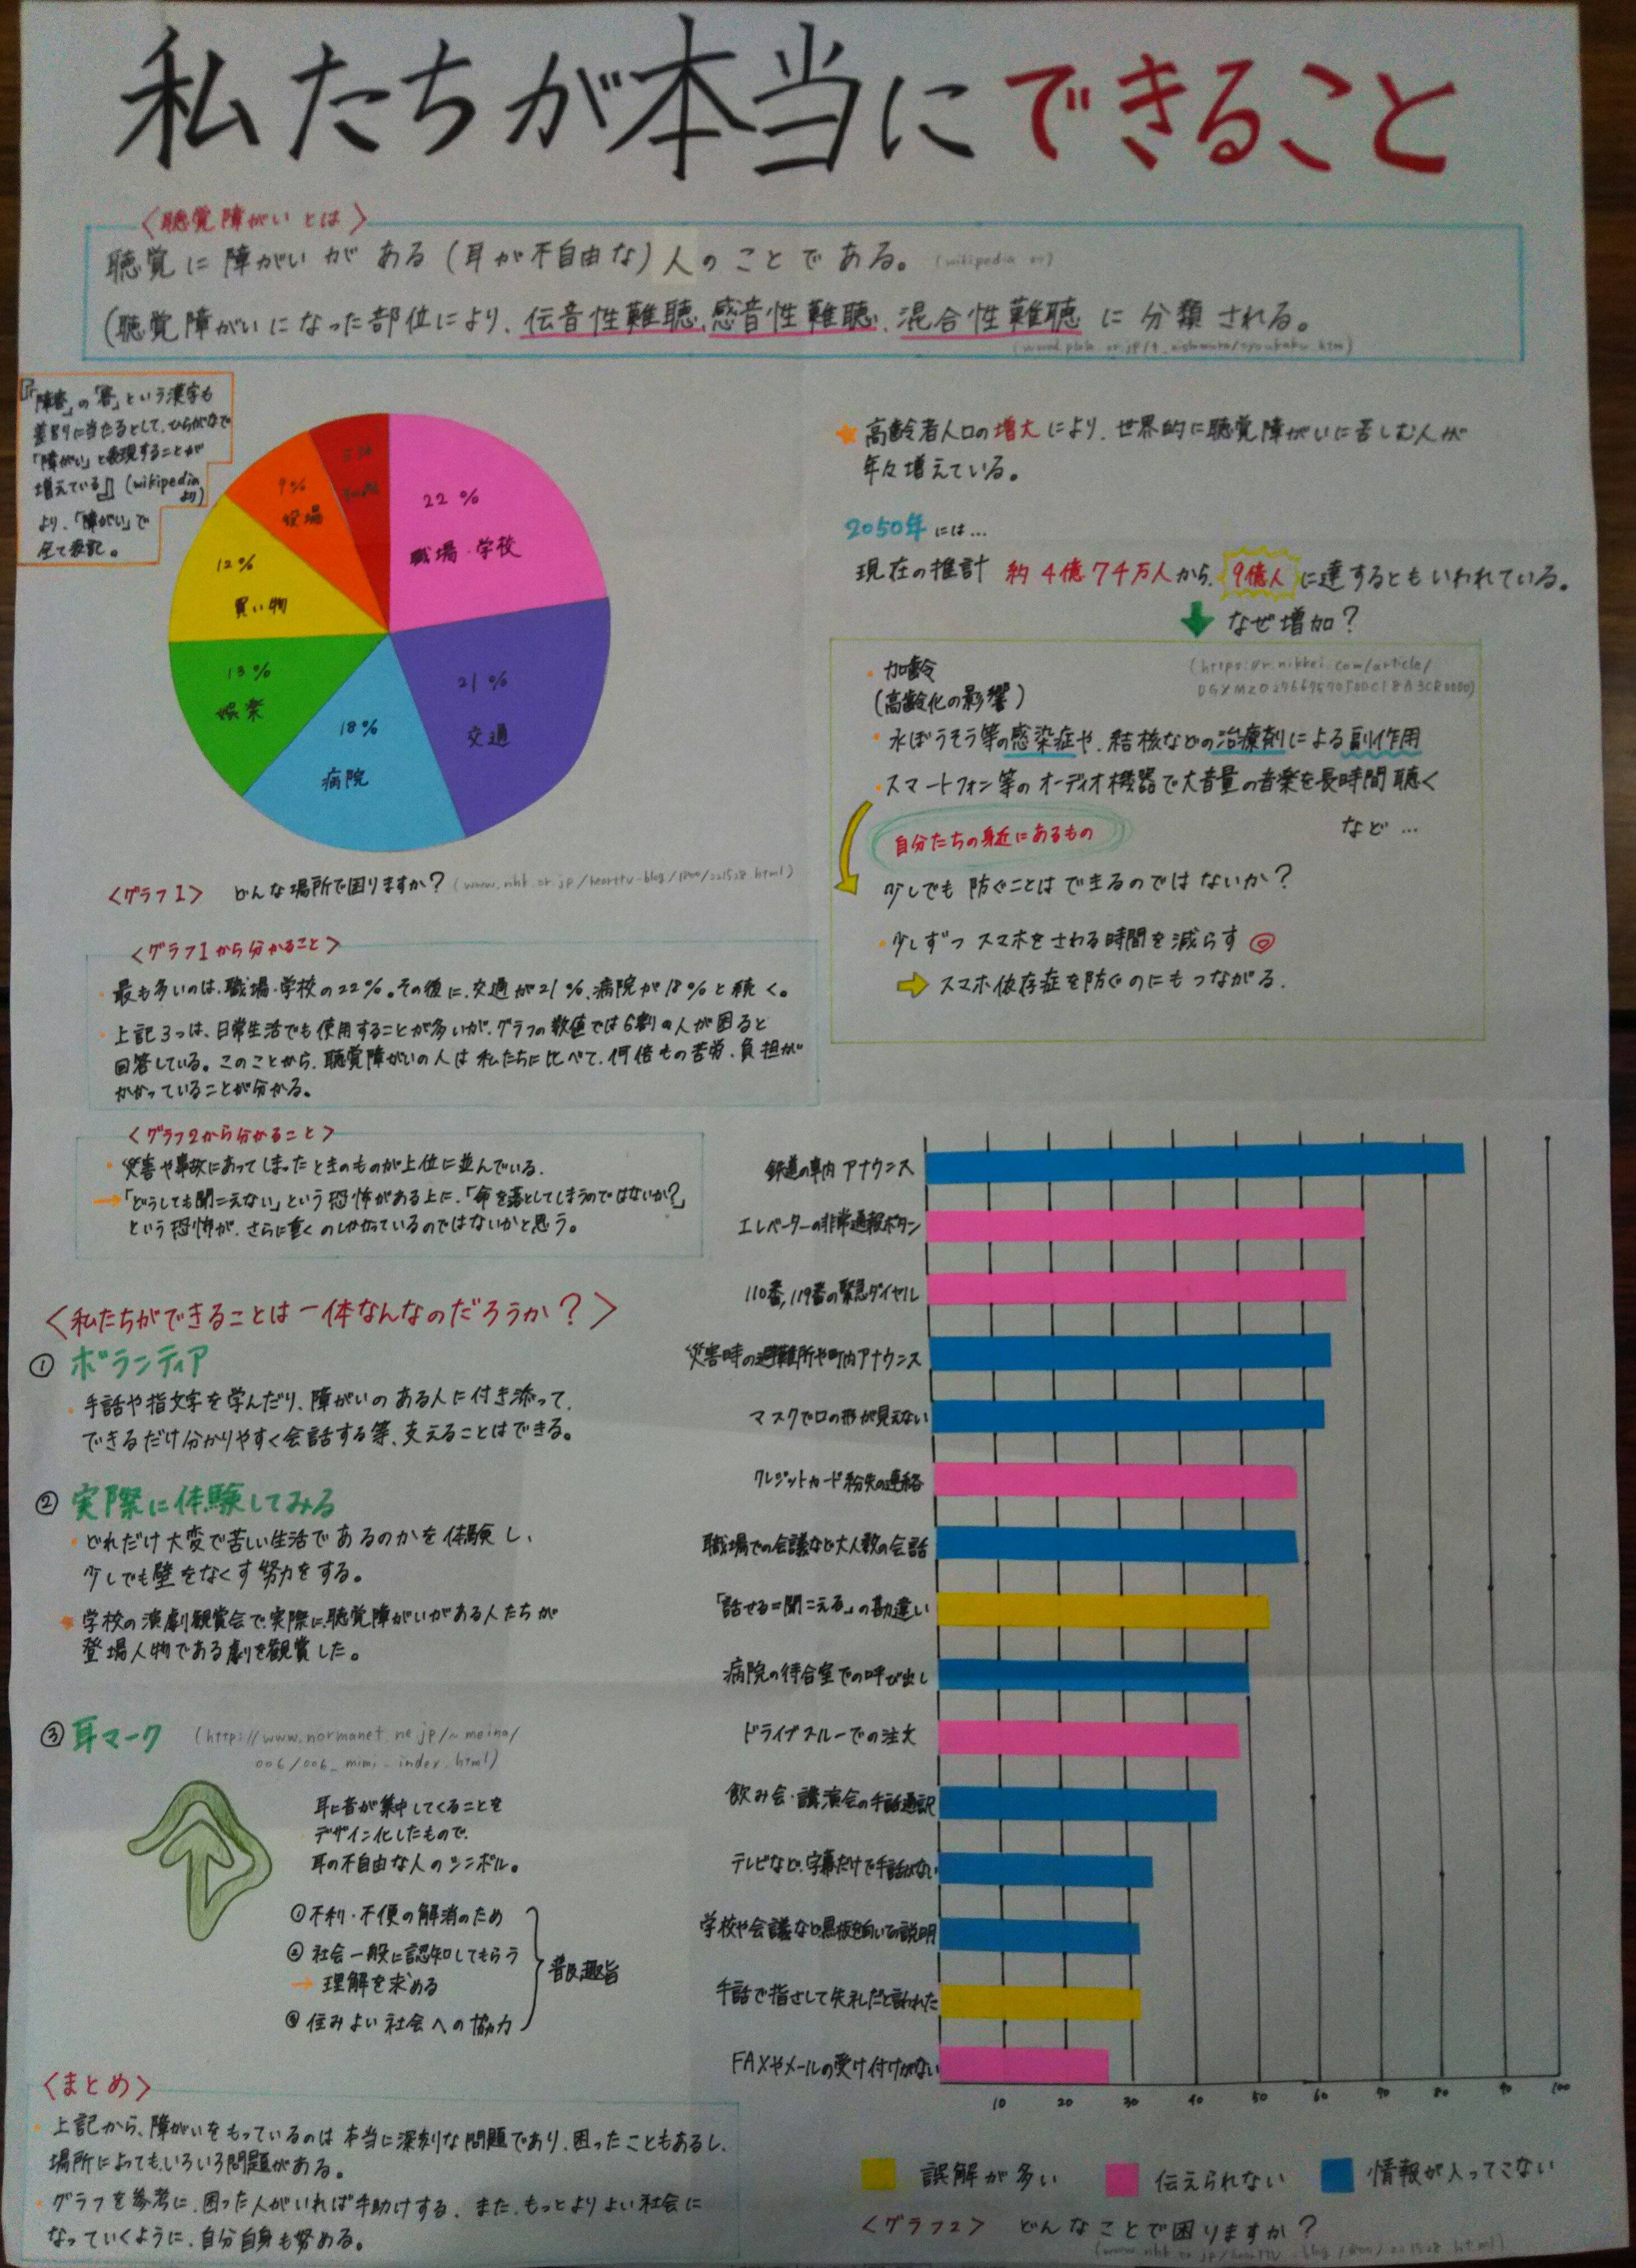 私たちが本当にできること
〈聴覚障がいとは〉
聴覚に障がいがある(耳が不自由な)人のことである。(wikipedia より)
(聴覚障がいになった部位により、伝音性難聴、感音性難聴、混合性難聴に分類される。
『「障害」の「害」という漢字も
差別に当たるとして、ひらがなで
「障がい」と表現することが
増えている』(wikipedia
より)
より、「障がい」で
全て表記。
22%
職場・学校
21%
交通
18%
病院
13%
娯楽
12%
買い物
9%
役場
〈グラフ1〉 どんな場所で困りますか?(www.nhk.or.jp/hearttv-blog/1800/221528.html)
〈グラフ1から分かること〉
・最も多いのは、職場・学校の22%。その後に、交通が21%、病院が18%と続く。
・上記3つは、日常生活でも使用することが多いが、グラフの数値では6割の人が困ると
回答している。このことから、聴覚障がいの人は私たちに比べて、何倍もの苦労、負担が
かかっていることが分かる。
★高齢者人口の増大により、世界的に聴覚障がいに苦しむ人が
年々増えている。
2050年には…
現在の推計 約4億74万人から、9億人に達するともいわれている。
なぜ増加?
・加齢
(高齢化の影響)
(https://r.nikkei.com/article/
・水ぼうそう等の感染症や、結核などの治療剤による副作用
・スマートフォン等のオーディオ機器で大音量の音楽を長時間聴く
など…
自分たちの身近にあるもの
少しでも防ぐことはできるのではないか?
・少しずつスマホをさわる時間を減らす◎
⇨スマホ依存症を防ぐのにもつながる。
〈グラフ2から分かること〉
・災害や事故にあってしまったときのものが上位に並んでいる。
→「どうしても聞こえない」という恐怖がある上に、「命を落としてしまうのではないか?」
という恐怖が、さらに重くのしかかっているのではないかと思う。
〈私たちができることは一体なんなのだろうか?〉
① ボランティア
・手話や指文字を学んだり、障がいのある人に付き添って、
できるだけ分かりやすく会話する等、支えることはできる。
② 実際に体験してみる
・どれだけ大変で苦しい生活であるのかを体験し、
少しでも壁をなくす努力をする。
★学校の演劇観賞会で、実際に、聴覚障がいがある人たちが
登場人物である劇を観賞した。
③耳マーク (http://www.normanet.ne.jp/~meina/
006/006_mimi_index.html)
耳に音が集中してくることを
デザイン化したもので、
耳の不自由な人のシンボル。
①不利・不便の解消のため
②社会一般に認知してもらう
→理解を求める
③住みよい社会への協力
普及趣旨
〈まとめ〉
・上記から、障がいをもっているのは本当に深刻な問題であり、困ったこともあるし、
場所によってもいろいろ問題がある。
・グラフを参考に、困った人がいれば手助けする。また、もっとよりよい社会に
なっていくように、自分自身も努める。
鉄道の車内アナウンス
エレベーターの非常通報ボタン
110番,119番の緊急ダイヤル
災害時の避難所や町内アナウンス
マスクで口の形が見えない
クレジットカード紛失の連絡
職場での会議など大人数の会話
「話せる=聞こえる」の勘違い
病院の待合室での呼び出し
ドライブスルーでの注文
飲み会・講演会の手話通訳
テレビなど、字幕だけで手話がない
学校や会議など黒板を向いての説明
手話で指さして失礼だと言われた
FAXやメールの受け付けがない
10 20 30 40 50 60 70 80 90 100
誤解が多い 伝えられない 情報が入ってこない
〈グラフ2〉 どんなことで困りますか?